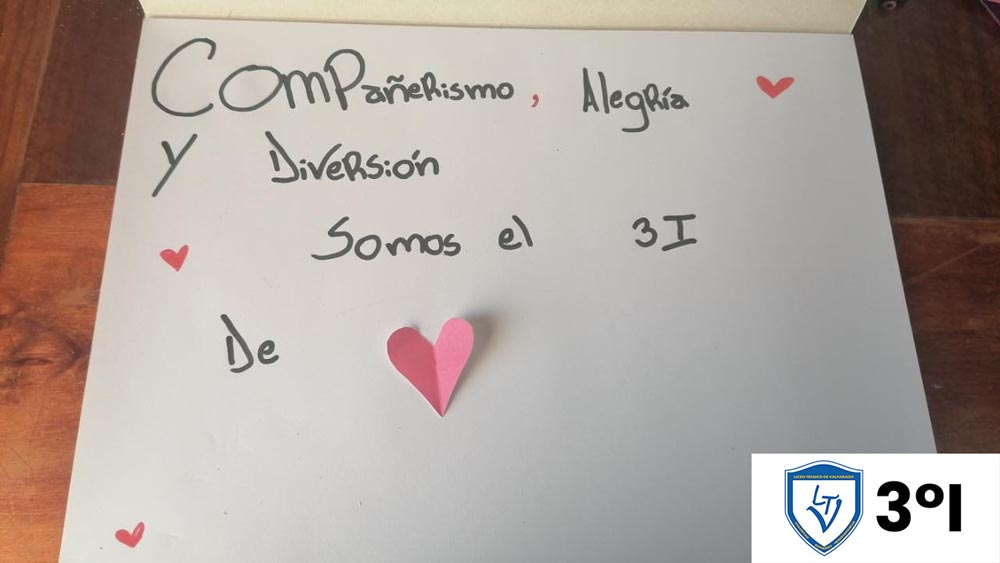 Compañerismo, Alegría
y Diversión
Somos el 3I
De
LICEO TÉCNICO DE VALPARAÍSO
LTV
3ºI